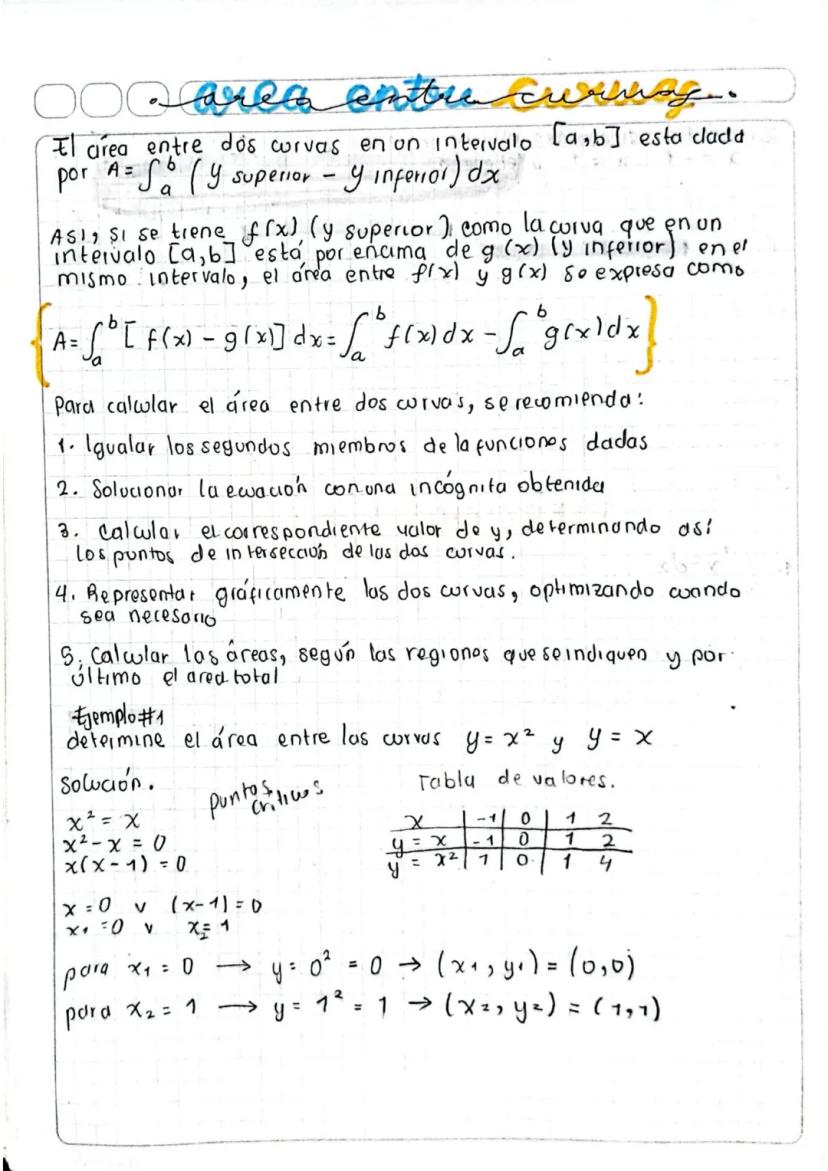 area entre curvas.
El área entre dos curvas en un intervalo [a,b] esta dada
por A = ∫ₐᵇ (y superior - y inferior) dx
Así, si se tiene f(x) (y superior) como la curva que en un
intervalo [a,b] está por encima de g(x) (y inferior) en el
mismo intervalo, el área entre f(x) y g(x) se expresa como
A = ∫ₐᵇ [f(x) - g(x)] dx = ∫ₐᵇ f(x) dx - ∫ₐᵇ g(x) dx
Para calcular el área entre dos curvas, se recomienda:
1. Igualar los segundos miembros de la funciones dadas
2. Solucionar la ecuación con una incógnita obtenida
3. Calcular el correspondiente valor de y, determinando así
los puntos de intersección de las dos curvas.
4. Representar gráficamente las dos curvas, optimizando cuando
sea necesario
5. Calcular las áreas, según las regiones que se indiquen y por
último el area total
Ejemplo #1
determine el área entre las curvas y = x² y y = x
Solución.
puntos críticos
x² = x
x² - x = 0
x(x - 1) = 0
x = 0 v (x - 1) = 0
x₁ = 0 v x₂ = 1
Tabla de valores.
x | -1 | 0 | 1 2
y = x | -1 | 0 | 1 2
y = x² | 1 | 0 | 1 4
para x₁ = 0 → y = 0² = 0 → (x₁, y₁) = (0,0)
para x₂ = 1 → y = 1² = 1 → (x₂, y₂) = (1,1)